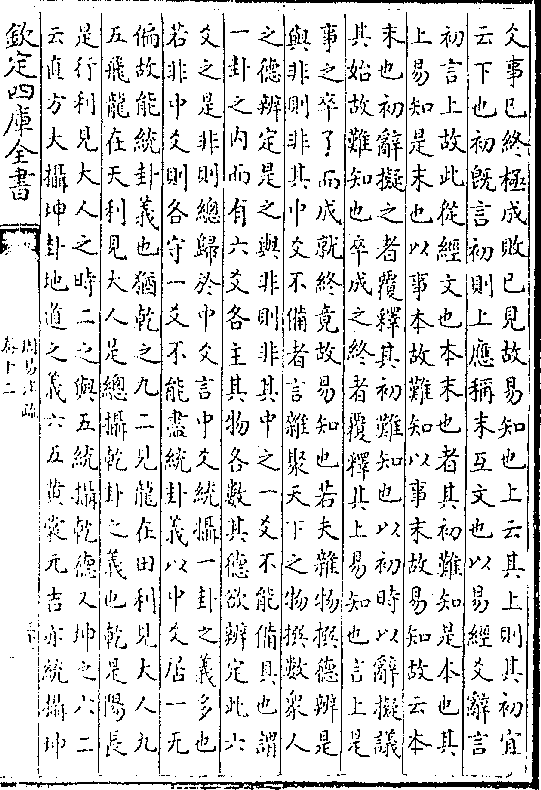 爻事已終極成敗已見故易知也上云其上則其初宜
云下也初既言初則上應稱末互文也以易經爻辭言
初言上故此從經文也本末也者其初難知是本也其
上易知是末也以事本故難知以事末故易知故云本
末也初辭擬之者覆釋其初難知也以初時以辭擬議
其始故難知也卒成之終者覆釋其上易知也言上是
事之卒了而成就終竟故易知也若夫雜物撰德辨是
與非則非其中爻不備者言雜聚天下之物撰數衆人
之德辨定是之與非則非其中之一爻不能備具也謂
一卦之内而有六爻各主其物各數其德欲辨定此六
爻之是非則總歸於中爻言中爻統攝一卦之義多也
若非中爻則各守一爻不能盡統卦義以中爻居一无
偏故能統卦義也猶乾之九二見龍在田利見大人九
五飛龍在天利見大人是總攝乾卦之義也乾是陽長
是行利見大人之時二之與五統攝乾德又坤之六二
云直方大攝坤卦地道之義六五黄裳元吉亦統攝坤
欽定四庫全書
周易注疏
卷十二